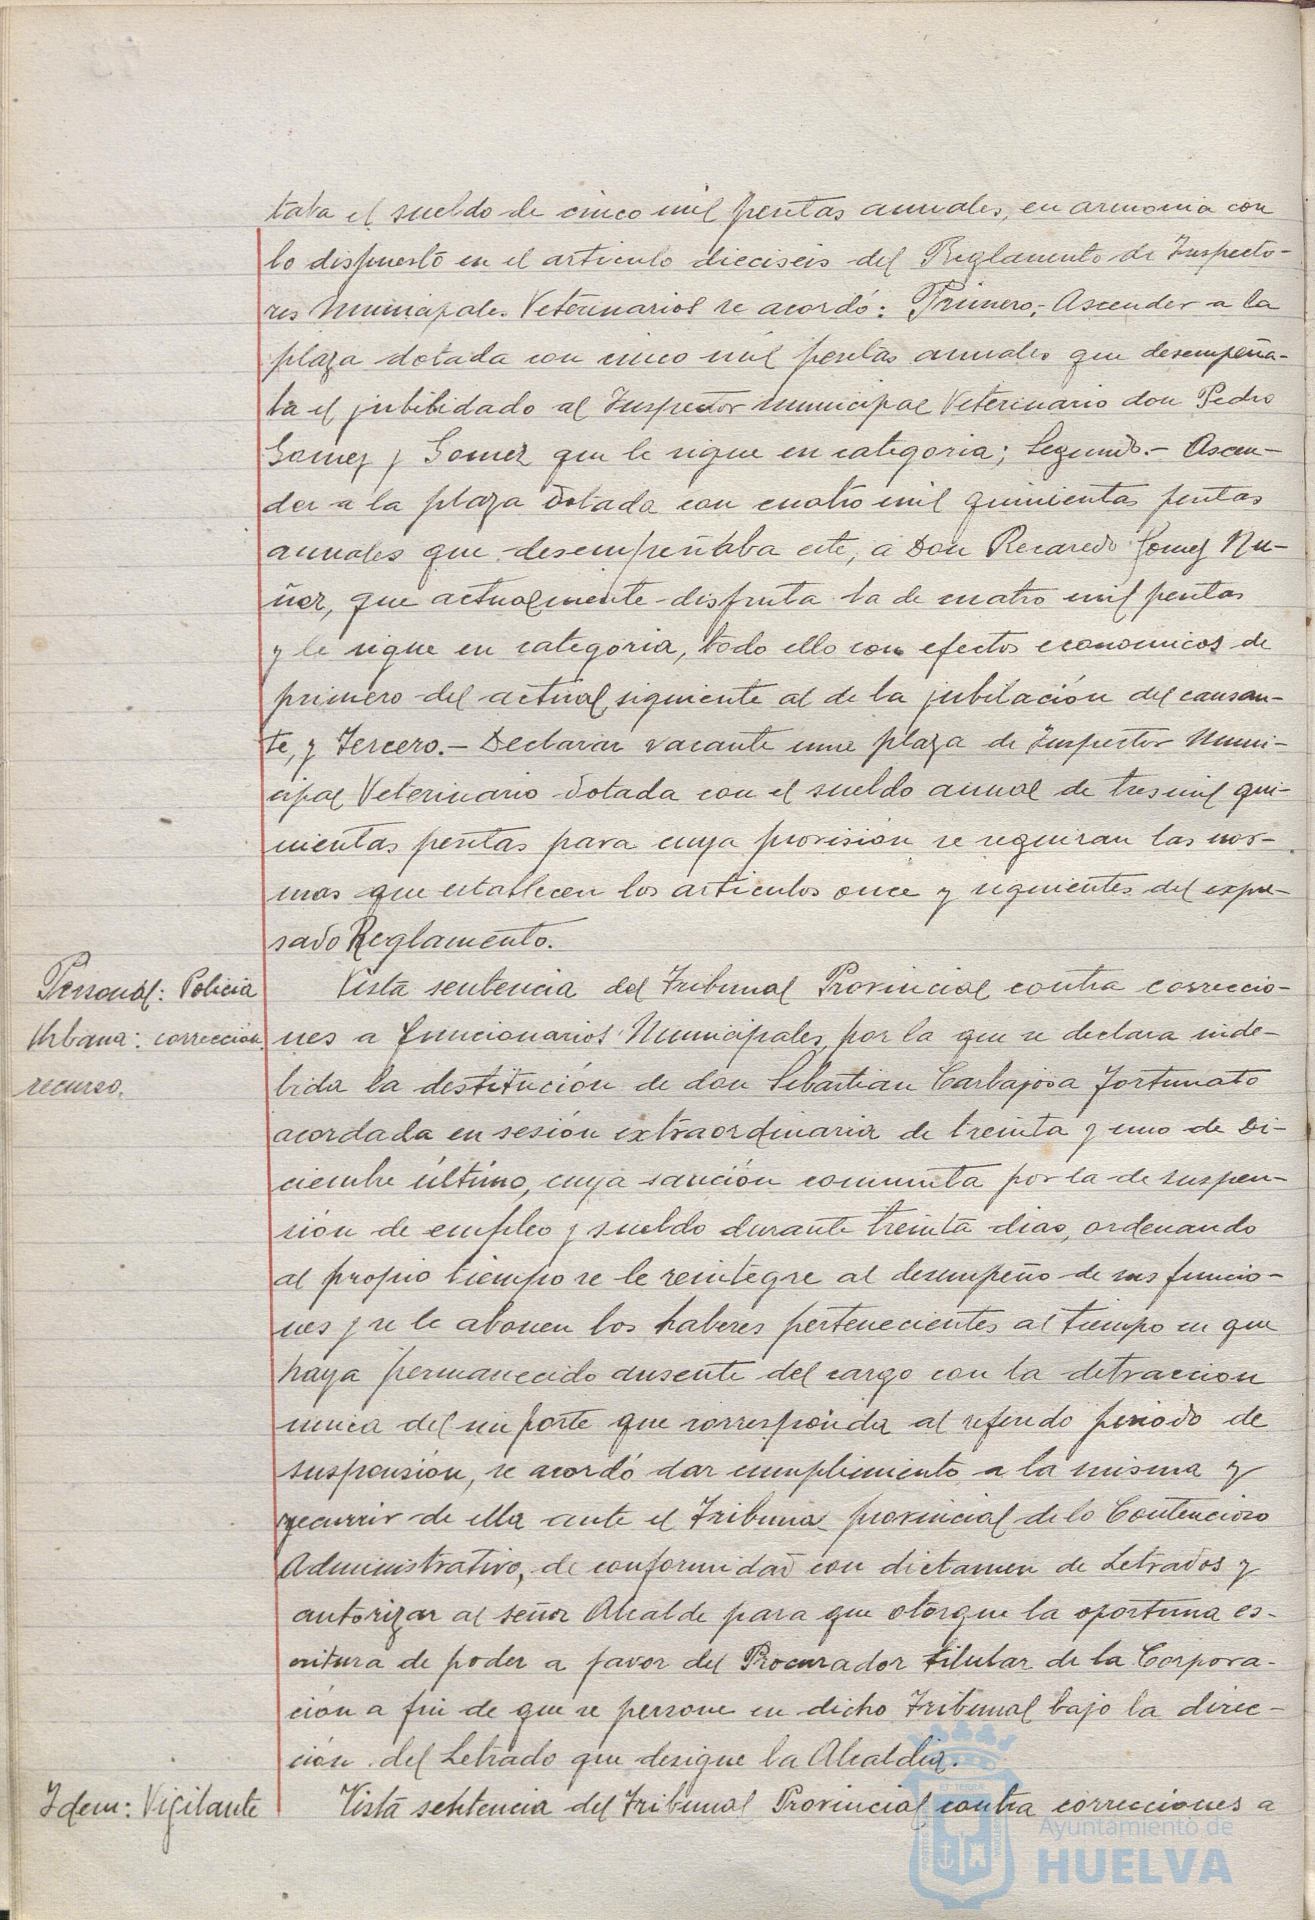 taba el sueldo de cinco mil pesetas anuales, en armonia con
lo dispuesto en el articulo dieciseis del Reglamento de Inspecto-
res Municipales Veterinarios se acordó: Primero.- Ascender a la
plaza dotada con cinco mil pesetas anuales que desempeña-
ba el jubilidado al Inspector municipal Veterinario don Pedro
Gomez y Gomez que le sigue en categoria; Segundo.- Ascen-
der a la plaza dotada con cuatro mil quinientas pesetas
anuales que desempeñaba este, a Don Recaredo Gomez Nu-
ñez, que actualmente disfruta la de cuatro mil pesetas
y le sigue en categoria, todo ello con efectos economicos de
primero del actual siguiente al de la jubilación del causan-
te, y Tercero.- Declarar vacante una plaza de Inspector Muni-
cipal Veterinario dotada con el sueldo anual de tres mil qui-
nientas pesetas para cuya provisión se seguiran las nor-
mas que establecen los articulos once y siguientes del expre-
sado Reglamento.
Personal: Policia
Urbana: correccion
recurso.
Vista sentencia del Tribunal Provincial contra correccio-
nes a funcionarios Municipales, por la que se declara inde-
bida la destitución de don Sebastian Carbajosa Fortunato
acordada en sesión extraordinaria de treinta y uno de Di-
ciembre último, cuya sanción conmuta por la de suspen-
sión de empleo y sueldo durante treinta dias, ordenando
al propio tiempo se le reintegre al desempeño de sus funcio-
nes y se le abonen los haberes pertenecientes al tiempo en que
haya permanecido ausente del cargo con la detraccion
unica del importe que corresponda al referido periodo de
suspensión, se acordó dar cumplimiento a la misma y
recurrir de ella ante el Tribunal provincial de lo Contencioso
Administrativo, de conformidad con dictamen de Letrados y
autorizar al señor Alcalde para que otorgue la oportuna es-
critura de poder a favor del Procurador titular de la Corpora-
ción a fin de que se persone en dicho Tribunal bajo la direc-
ción del Letrado que designe la Alcaldia.
Idem: Vigilante
Vista sentencia del Tribunal Provincial contra correcciones a
Ayuntamiento de
HUELVA